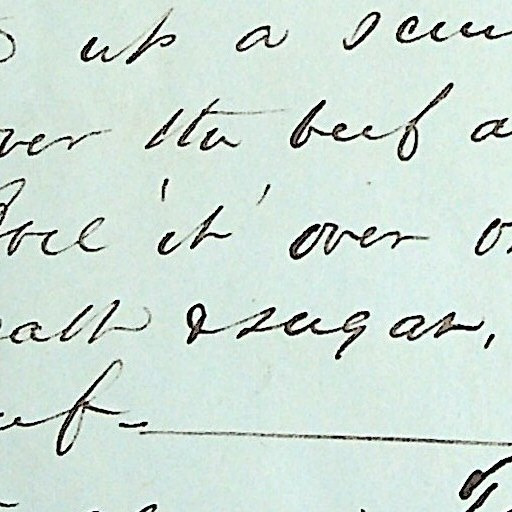 up a scum
over the beef a
boil 'it' over o
salt & sugar,
beef-